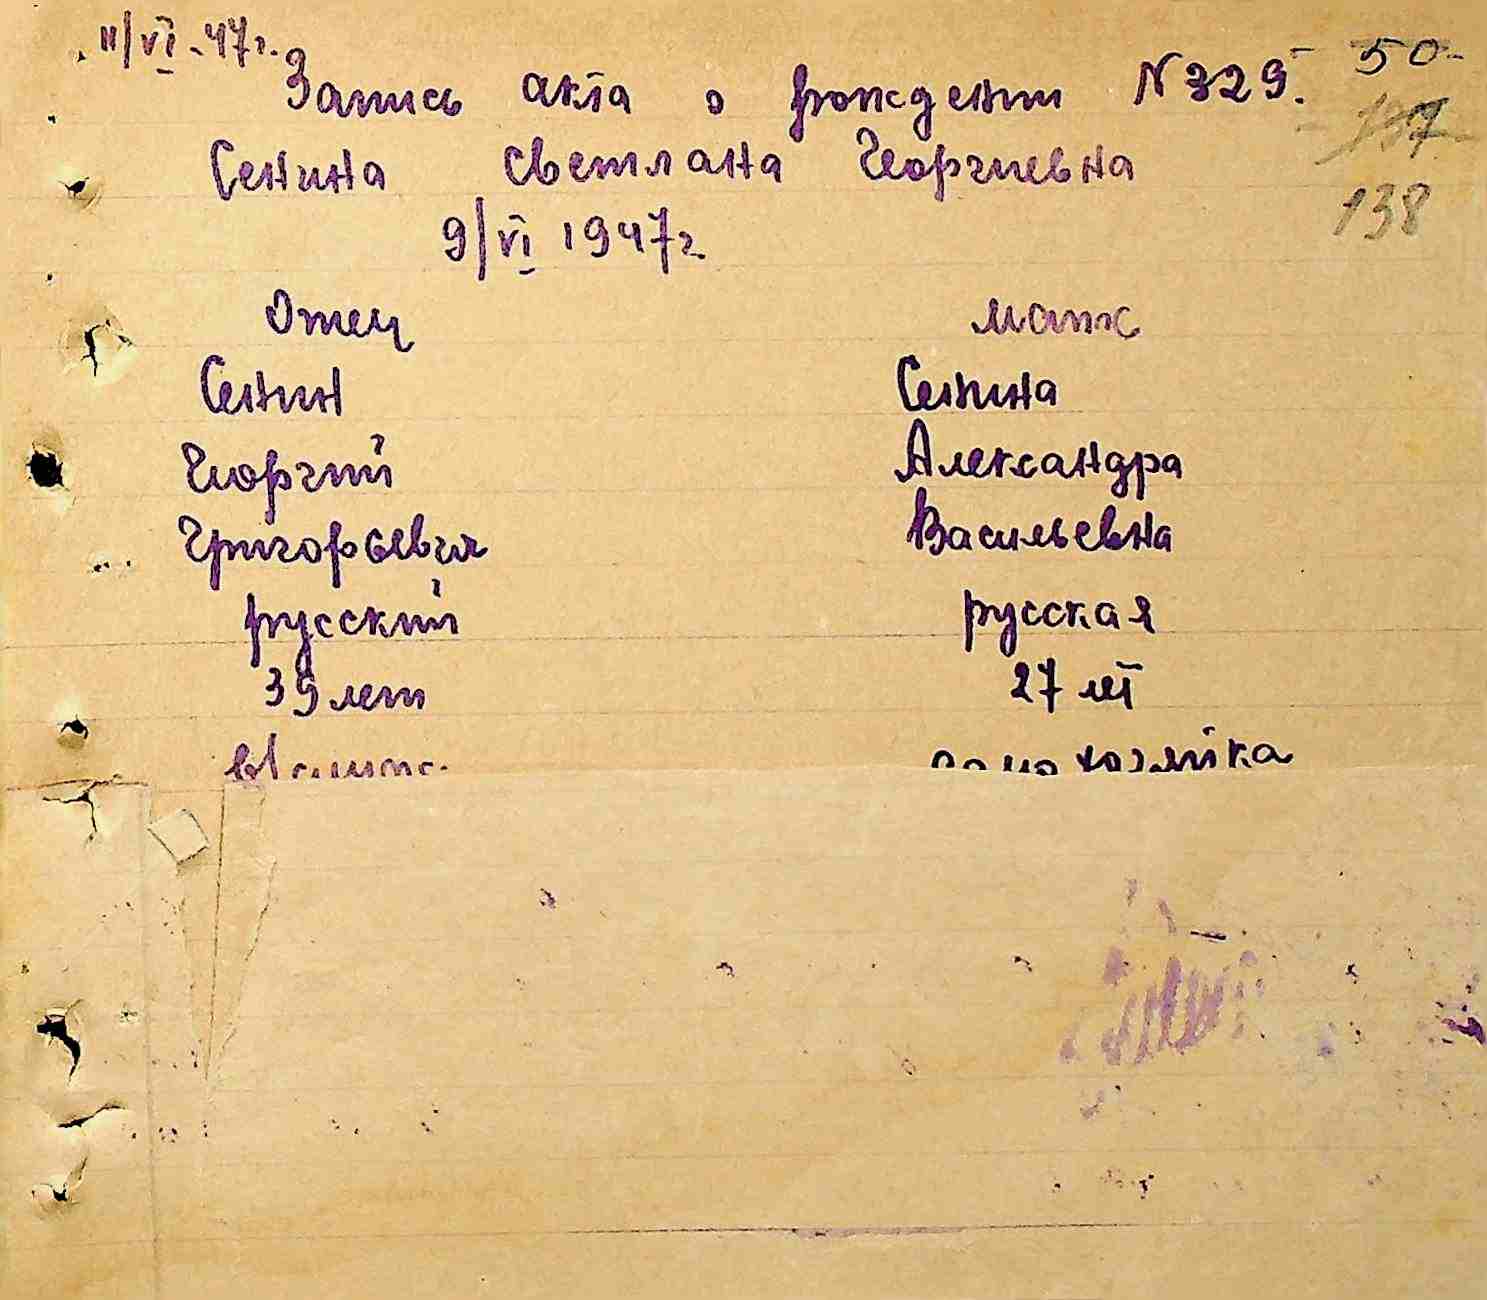 11/VI-47г.
Запись акта о рождении N 329. 50-
137
Сенина Светлана Георгиевна
138
9/VI 1947г.
Отец мать
Сенин Сенина
Георгий Александра
Григорьевич Васильевна
русский русская
39 лет 27 лет
домохозяйка